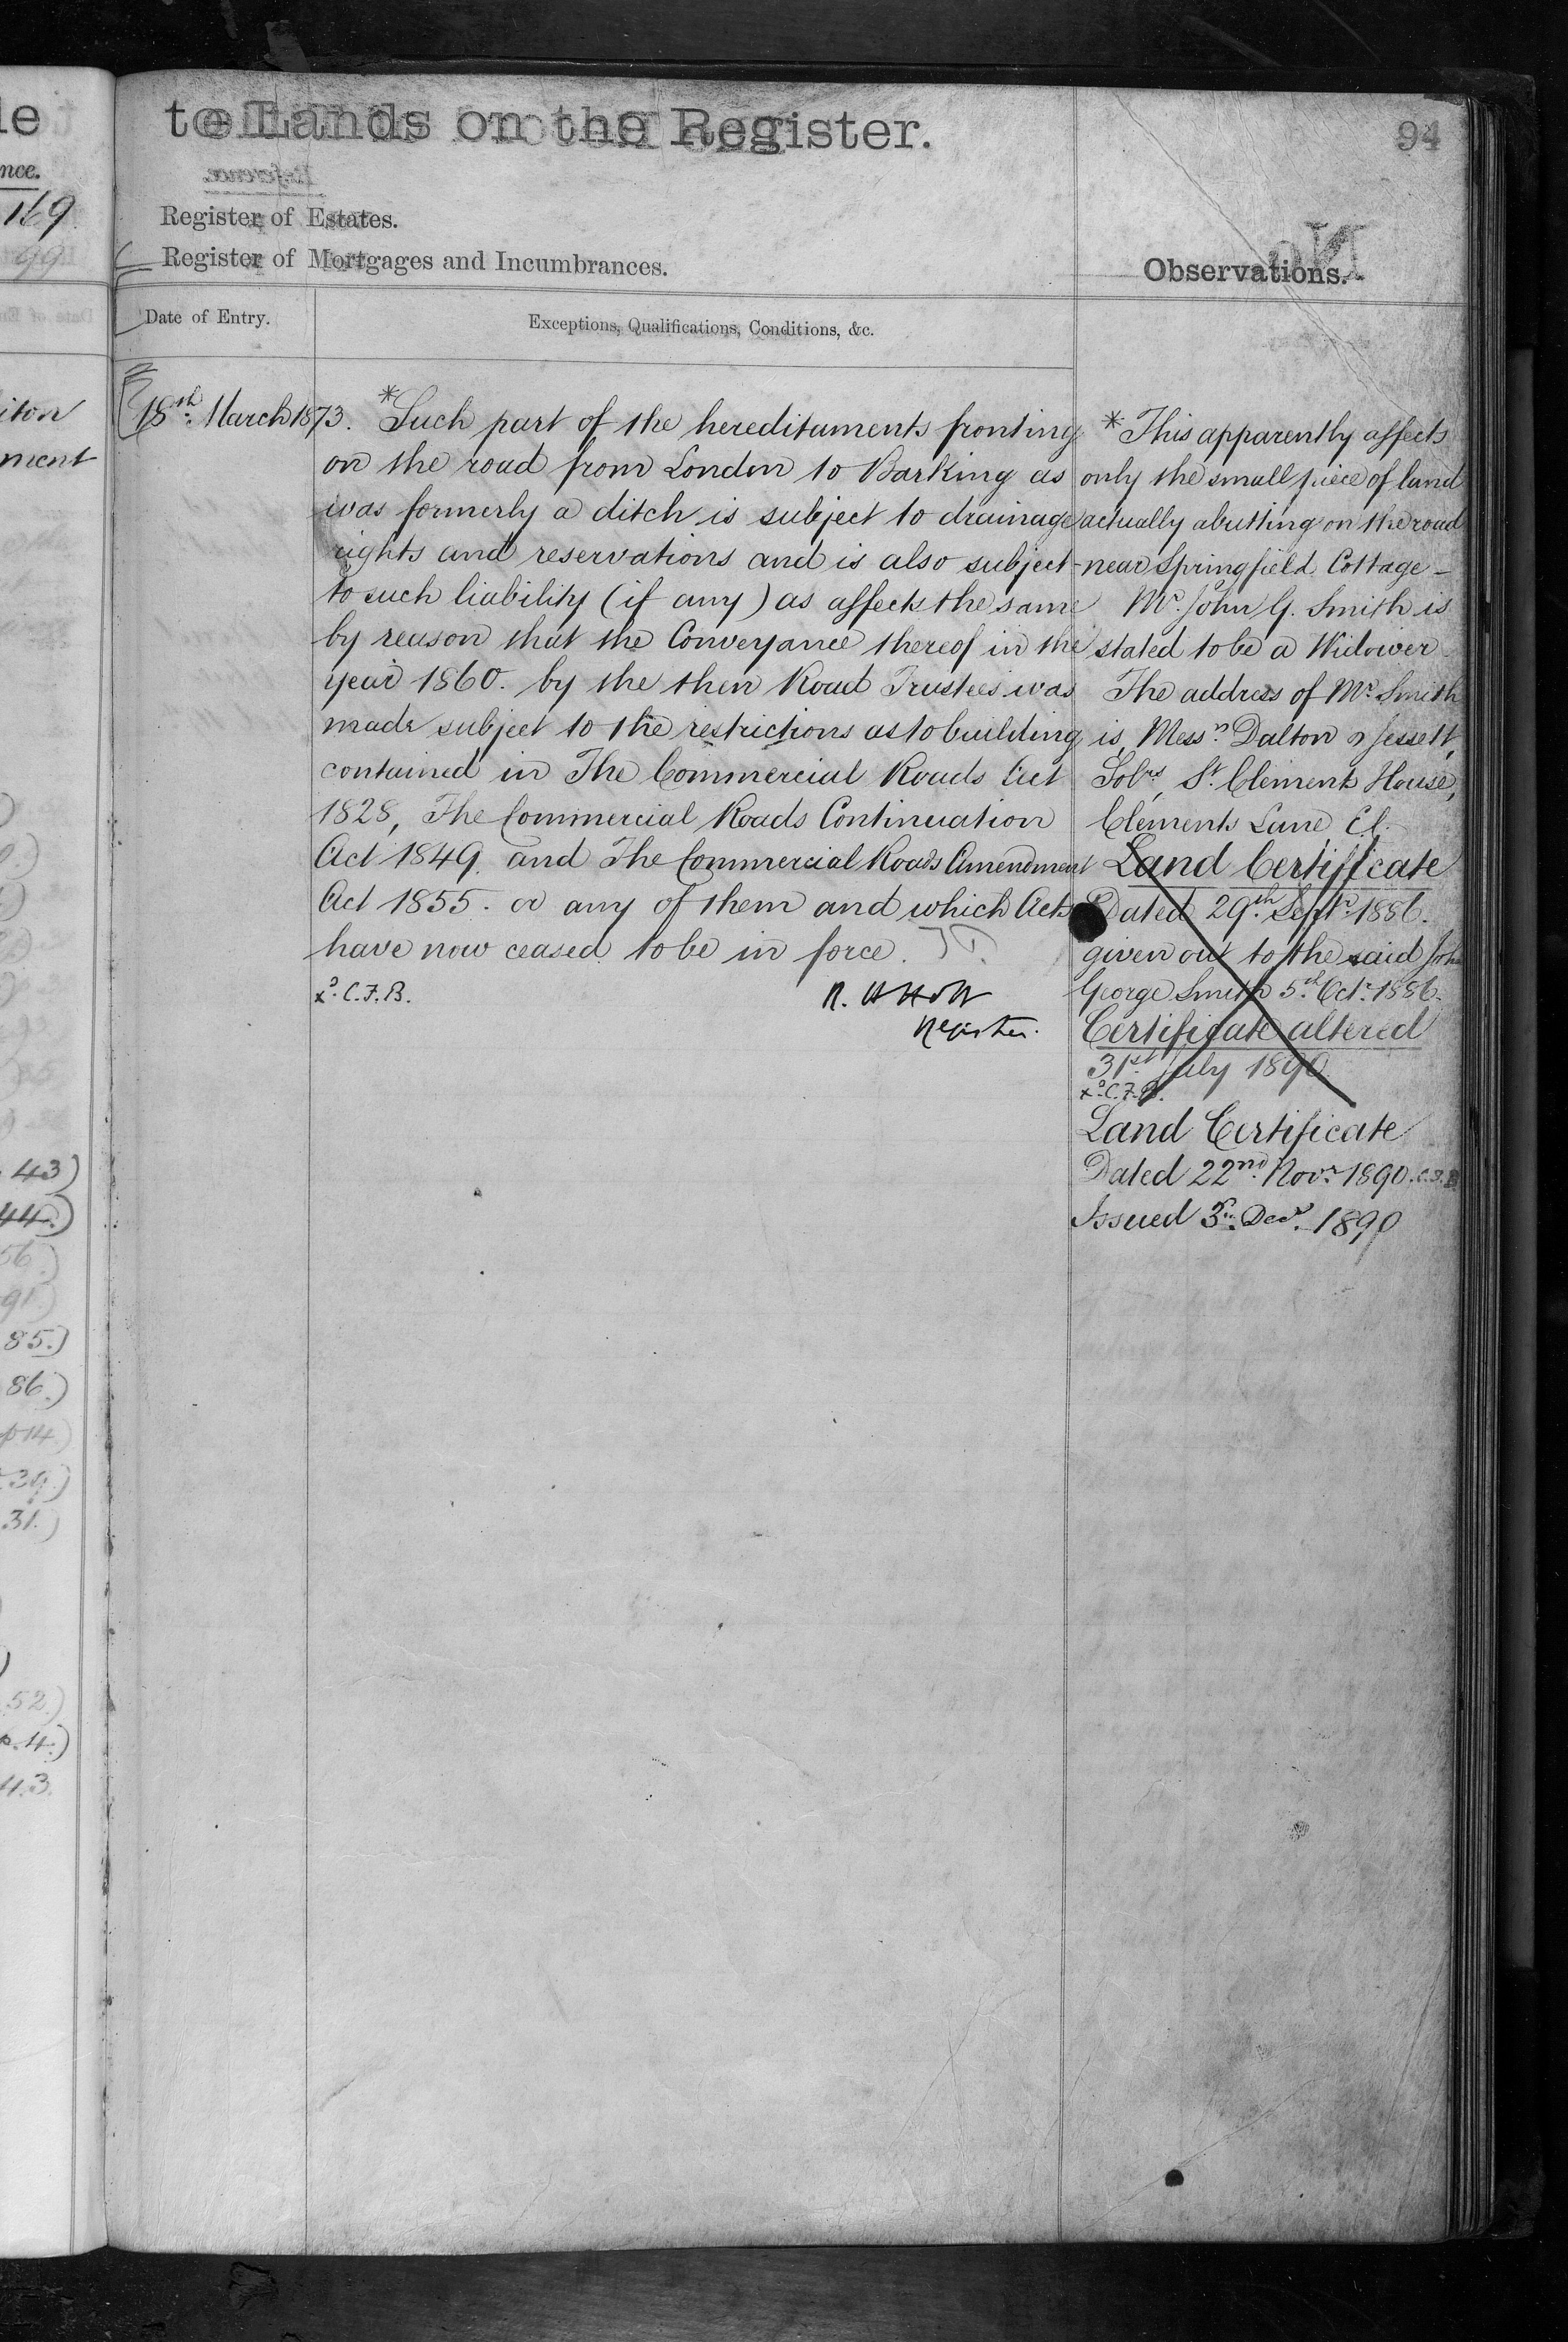 le
nce.
169.
99
iton
ment
43)
44.)
56.)
91.)
85.)
86.)
p14.)
39)
31.)
52.)
p.4.)
43.
to Lands on the Register.
94
Register of Estates.
Register of Mortgages and Incumbrances.
Observations.
Date of Entry.
Exceptions, Qualifications, Conditions, &c.
18th March 1873.
*Such part of the hereditaments fronting
on the road from London to Barking as
was formerly a ditch is subject to drainage
rights and reservations and is also subject
to such liability (if any) as affects the same
by reason that the Conveyance thereof in the
year 1860. by the then Road Trustees was
made subject to the restrictions as to building
contained in The Commercial Roads Act
1828, The Commercial Roads Continuation
Act 1849. and The Commercial Roads Amendment
Act 1855. or any of them and which Acts
have now ceased to be in force.
xd. C.F.B.
Register.
* This apparently affects
only the small piece of land
actually abutting on the road
near Springfield Cottage –
Mr. John G. Smith is
stated to be a Widower.
The address of Mr. Smith
is, Messrs. Dalton & Jessett,
Solrs, St. Clements House,
Clements Lane E.C.
Land Certificate
Dated 29th. Septr. 1886.
given out to the said John
George Smith 5th Octr. 1886.
Certificate altered
31st. July 1890.
xd. C.F.B.
Land Certificate
Dated 22nd. Novr. 1890. C.F.B.
Issued 3rd. Decr. 1890